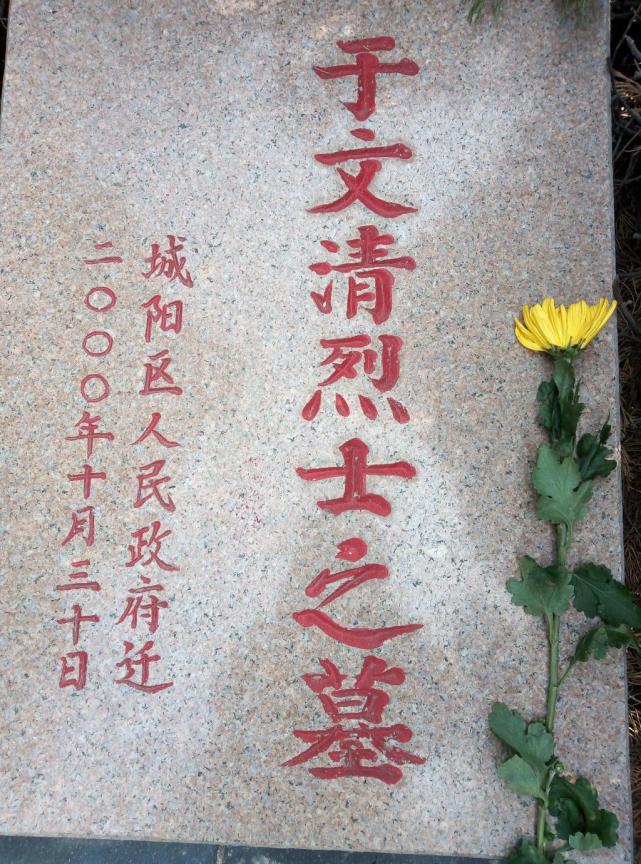 于文清烈士之墓
城阳区人民政府迁
二〇〇〇年十月三十日